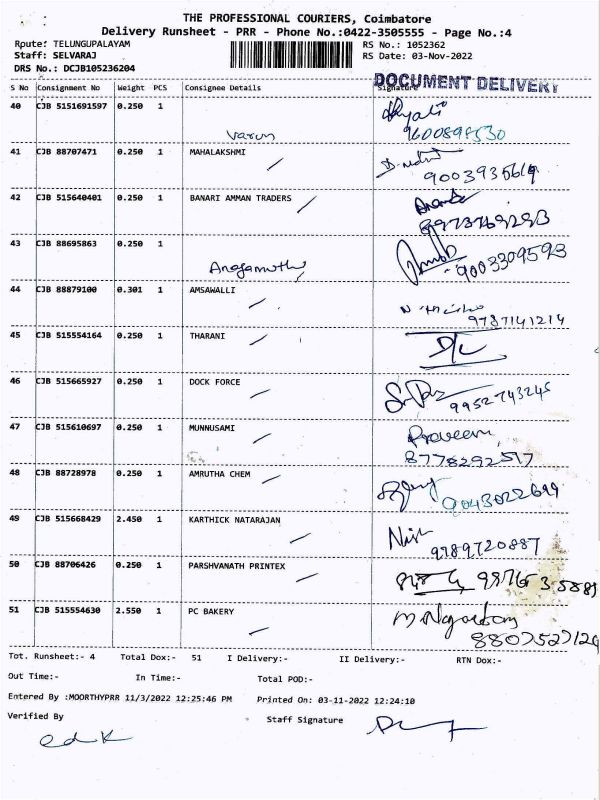 THE PROFESSIONAL COURIERS, Coimbatore
Delivery Runsheet - PRR - Phone No.:0422-3505555 - Page No.:4
Route: TELUNGUPALAYAM RS No.: 1052362
Staff: SELVARAJ RS Date: 03-Nov-2022
DRS No.: DCJB105236204
DOCUMENT DELIVERY
S No Consignment No Weight PCS Consignee Details Signature
40 CJB 5151691597 0.250 1
Varun 9600898530
41 CJB 88707471 0.250 1 MAHALAKSHMI
9003935619
42 CJB 515640401 0.250 1 BANARI AMMAN TRADERS
8973769293
43 CJB 88695863 0.250 1
9003309593
44 CJB 88879100 0.301 1 AMSAWALLI
9787141214
45 CJB 515554164 0.250 1 THARANI
D/L
46 CJB 515665927 0.250 1 DOCK FORCE
9952-743245
47 CJB 515610697 0.250 1 MUNNUSAMI Praveen
8778292517
48 CJB 88728978 0.250 1 AMRUTHA CHEM
9043022699
49 CJB 515668429 2.450 1 KARTHICK NATARAJAN
9789720887
50 CJB 88706426 0.250 1 PARSHVANATH PRINTEX
51 CJB 515554630 2.550 1 PC BAKERY
8807527124
Tot. Runsheet:- 4 Total Dox:- 51 I Delivery:- II Delivery:- RTN Dox:-
Out Time:- In Time:- Total POD:-
Entered By :MOORTHYPRR 11/3/2022 12:25:46 PM Printed On: 03-11-2022 12:24:10
Verified By Staff Signature